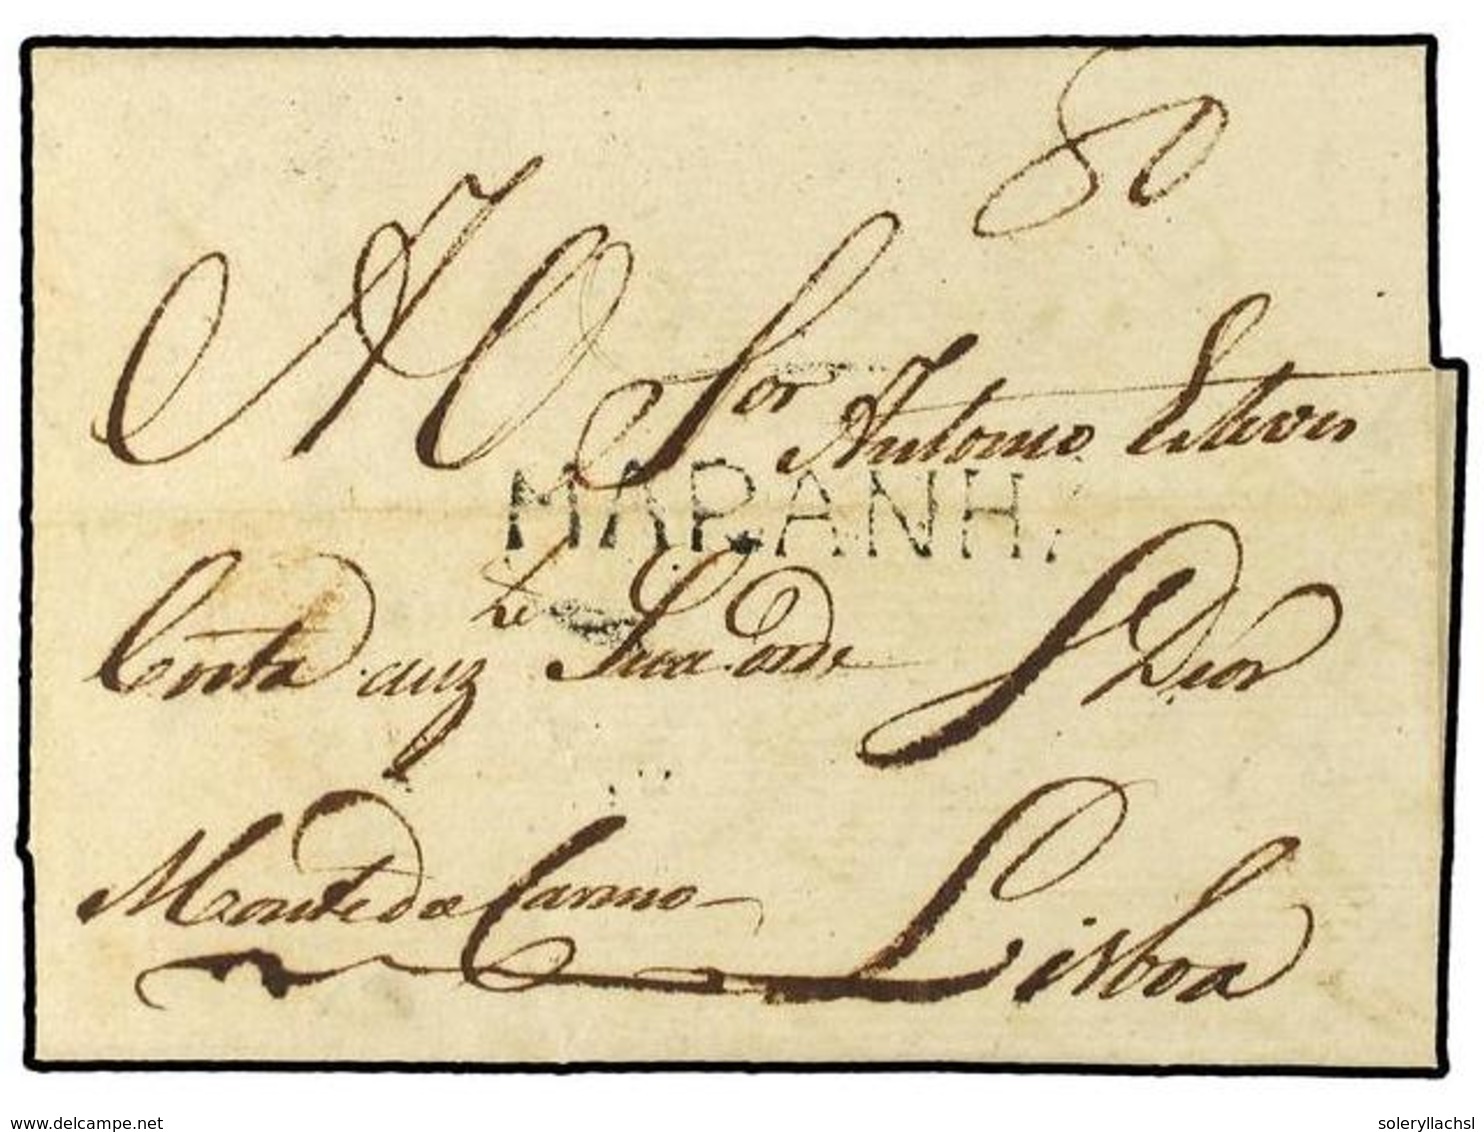 80
AO Sor Antonio Esteves
MARANH.
Costa auz.te Sua orde S Dior
Monte do Carmo - Lisboa
www.delcampe.net
soleryllachsl